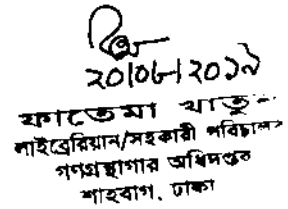 ২০/০৮/২০১৯
ফাতেমা খাতু
লাইব্রেরিয়ান/সহকারী পরিচাল
গণগ্রন্থাগার অধিদপ্তর
শাহবাগ, ঢাকা